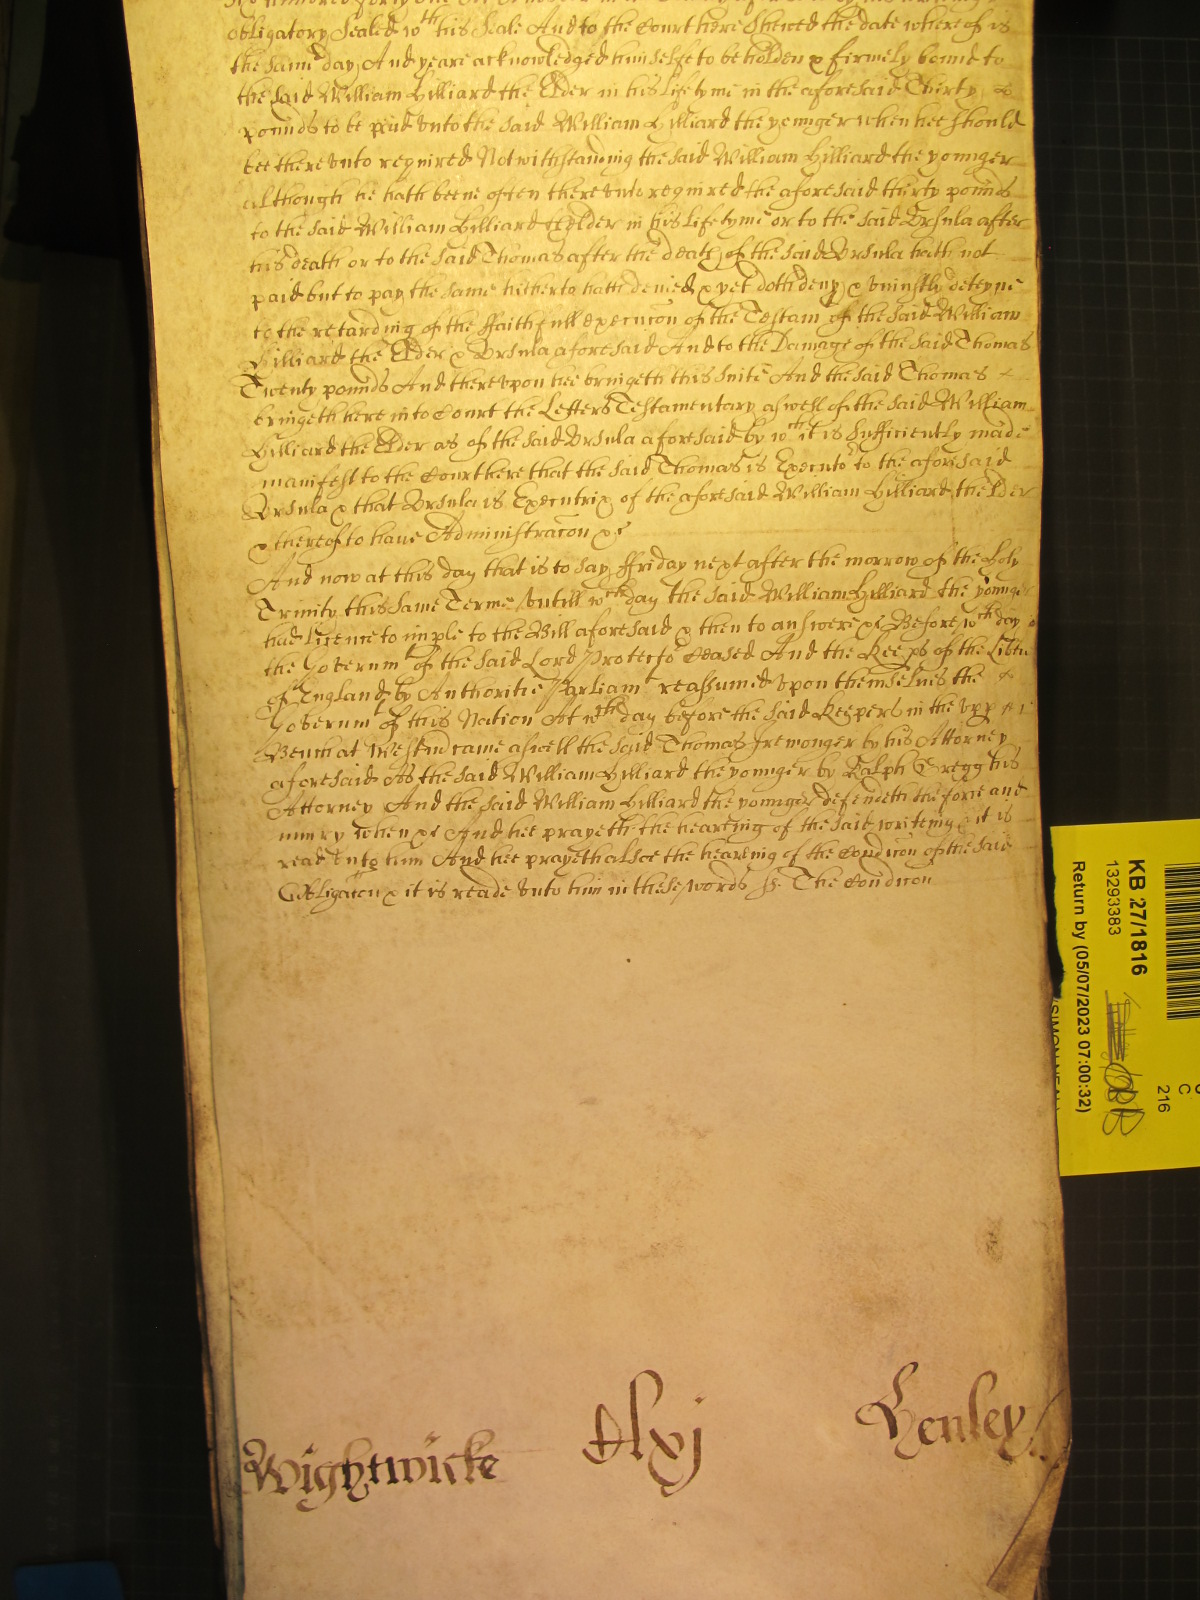 obligatory Sealed wth his Seale And to the Court here Shewed the date whereof is
the same day And yeare acknowledged himselfe to be holden & firmely bound to
the said William Hilliard the Elder in his life tyme in the aforesaid Thirty
pounds to be paid vnto the said William Hilliard the younger when hee should
bee therevnto required Notwithstanding the said William Hilliard the younger
although he hath beene often therevnto required the aforesaid thirty pounds
to the said William Hilliard the elder in his life tyme or to the said Vrsula after
his death or to the said Thomas after the death of the said Vrsula hath not
paid but to pay the same hitherto hath denied & yet doth deny & vniustly deteyne
to the retarding of the ffaithfull execucon of the Testam of the said William
Hilliard the Elder & Vrsula aforesaid And to the Damage of the said Thomas
Twenty pounds And therevpon hee bringeth this suite And the said Thomas
bringeth here into Court the Letters Testamentary aswell of the said William
Hilliard the Elder as of the said Vrsula aforesaid by wch it is sufficiently made
manifest to the Court here that the said Thomas is Executor to the aforesaid
Vrsula & that Vrsula is Executrix of the aforesaid William Hilliard the Elder
& thereof to haue Administracon &c
And now at this day that is to say ffriday next after the morrow of the Holy
Trinity this same Terme vntill wch day the said William Hilliard the younger
had Licence to imple to the Bill aforesaid & then to answere &c Before wch day
the Governmt of the said Lord Protector Ceased And the Keeps of the Libtie
of England by Authoritie Parliamt reassumed vpon themselues the
Governmt of this Nation At wch day before the said Keepers in the vpp
Bench at Westm came aswell the said Thomas Iremonger by his Attorney
aforesaid As the said William Hilliard the younger by Ralph Gregg his
Attorney And the said William Hilliard the younger defendeth the force and
iniury when &c And hee prayeth the heareing of the said writeing & it is
read vnto him And hee prayeth alsoe the heareing of the Condicon of the said
Obligacon & it is reade vnto him in these words ss. The Condicon
Wightwicke Clxj Henley
KB 27/1816
13293383
Return by (05/07/2023 07:00:32)
C
216